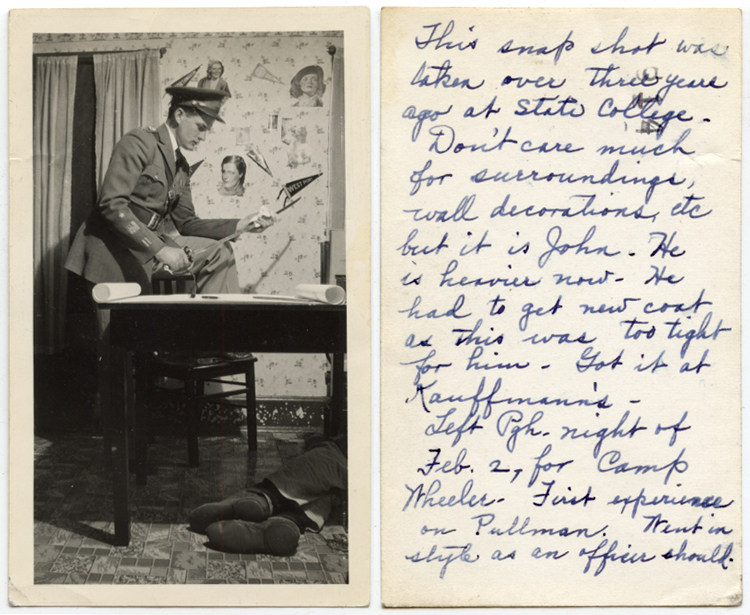 WEST
This snap shot was
taken over three years
ago at State College.
Don't care much
for surroundings,
wall decorations, etc
but it is John - He
is heavier now - He
had to get new coat
as this was too tight
for him - Got it at
Kauffmann's -
Left Pgh. night of
Feb. 2, for Camp
Wheeler - First experience
on Pullman. Went in
style as an officer should.